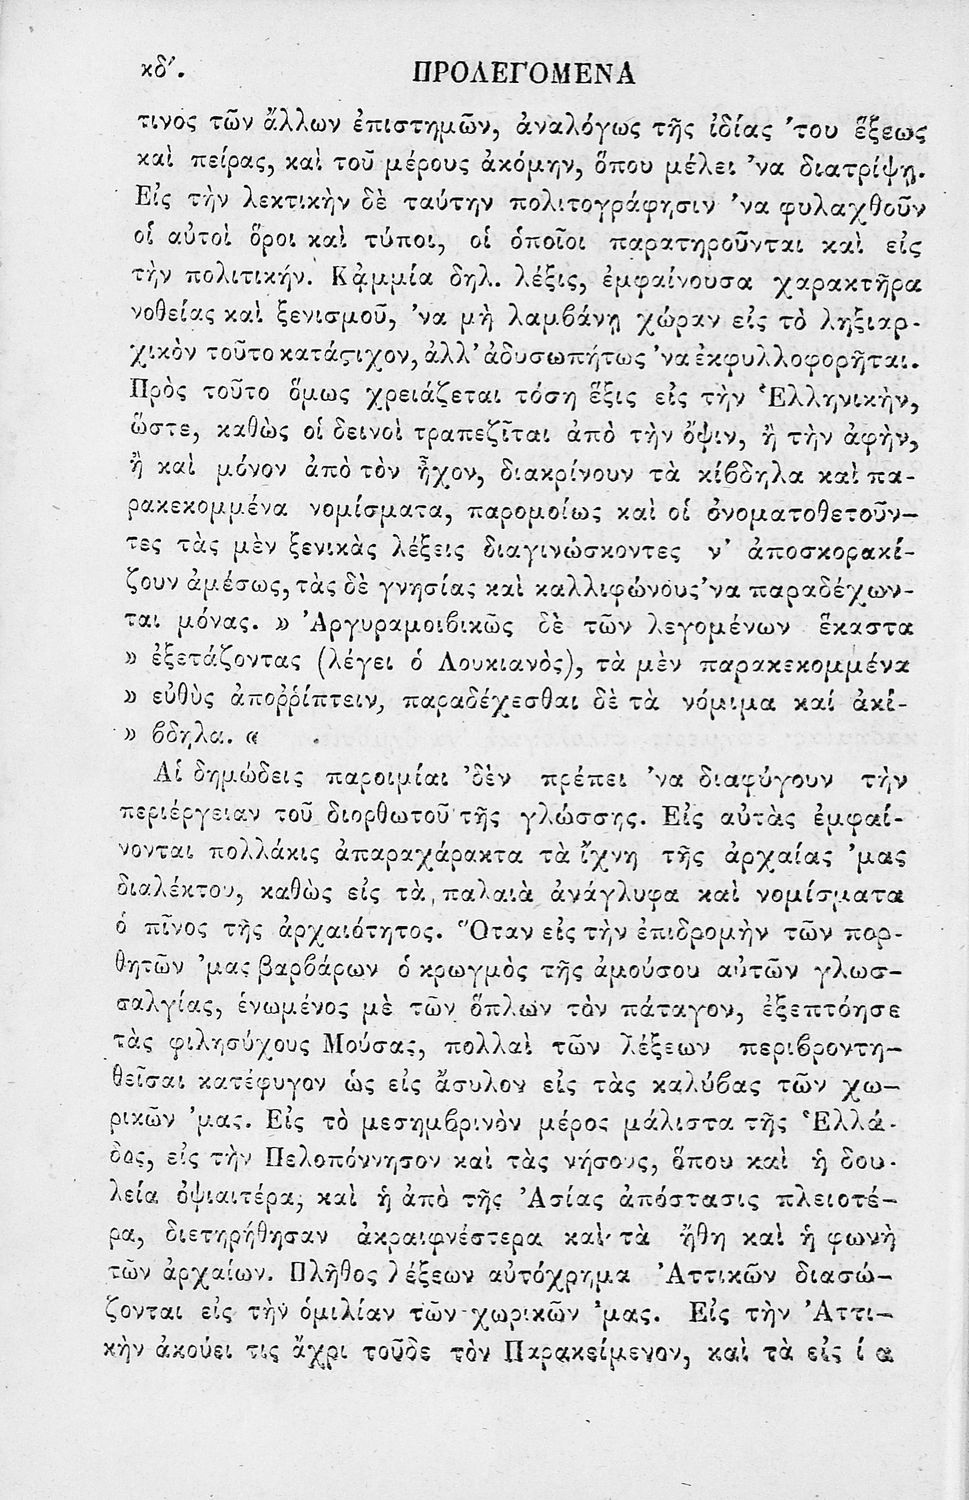 κδʹ.
ΠΡΟΛΕΓΟΜΕΝΑ
τινος τῶν ἄλλων ἐπιστημῶν, ἀναλόγως τῆς ἰδίας ’του ἕξεως
καὶ πείρας, καὶ τοῦ μέρους ἀκόμην, ὅπου μέλει ’να διατρίψῃ.
Εἰς τὴν λεκτικὴν δὲ ταύτην πολιτογράφησιν ’να φυλαχθοῦν
οἱ αὐτοὶ ὅροι καὶ τύποι, οἱ ὁποῖοι παρατηροῦνται καὶ εἰς
τὴν πολιτικήν. Κᾀμμία δηλ. λέξις, ἐμφαίνουσα χαρακτῆρα
νοθείας καὶ ξενισμοῦ, ’να μὴ λαμβάνῃ χώραν εἰς τὸ ληξιαρ-
χικὸν τοῦτο κατάϛιχον, ἀλλ’ ἀδυσωπήτως ’να ἐκφυλλοφορῆται.
Πρὸς τοῦτο ὅμως χρειάζεται τόση ἕξις εἰς τὴν Ἑλληνικὴν,
ὥστε, καθὼς οἱ δεινοὶ τραπεζῖται ἀπὸ τὴν ὄψιν, ἢ τὴν ἀφὴν,
ἢ καὶ μόνον ἀπὸ τὸν ἦχον, διακρίνουν τὰ κίβδηλα καὶ πα-
ρακεκομμένα νομίσματα, παρομοίως καὶ οἱ ὀνοματοθετοῦν-
τες τὰς μὲν ξενικὰς λέξεις διαγινώσκοντες ν’ ἀποσκορακί-
ζουν ἀμέσως, τὰς δὲ γνησίας καὶ καλλιφώνους ’να παραδέχων-
ται μόνας. » Ἀργυραμοιβικῶς δὲ τῶν λεγομένων ἕκαστα
» ἐξετάζοντας (λέγει ὁ Λουκιανὸς), τὰ μὲν παρακεκομμένα
» εὐθὺς ἀποῤῥίπτειν, παραδέχεσθαι δὲ τὰ νόμιμα καί ἀκί-
» βδηλα. «
Αἱ δημώδεις παροιμίαι ’δὲν πρέπει ’να διαφύγουν τὴν
περιέργειαν τοῦ διορθωτοῦ τῆς γλώσσης. Εἰς αὐτὰς ἐμφαί-
νονται πολλάκις ἀπαραχάρακτα τὰ ἴχνη τῆς ἀρχαίας ’μας
διαλέκτου, καθὼς εἰς τὰ παλαιὰ ἀνάγλυφα καὶ νομίσματα
ὁ πῖνος τῆς ἀρχαιότητος. Ὅταν εἰς τὴν ἐπιδρομὴν τῶν πορ-
θητῶν ’μας βαρβάρων ὁ κρωγμὸς τῆς ἀμούσου αὐτῶν γλωσ-
σαλγίας, ἑνωμένος μὲ τῶν ὅπλων τὸν πάταγον, ἐξεπτόησε
τὰς φιλησύχους Μούσας, πολλαὶ τῶν λέξεων περιβροντη-
θεῖσαι κατέφυγον ὡς εἰς ἄσυλον εἰς τὰς καλύβας τῶν χω-
ρικῶν ’μας. Εἰς τὸ μεσημβρινὸν μέρος μάλιστα τῆς Ἑλλά-
δος, εἰς τὴν Πελοπόννησον καὶ τὰς νήσους, ὅπου καὶ ἡ δου-
λεία ὀψιαιτέρα, καὶ ἡ ἀπὸ τῆς Ἀσίας ἀπόστασις πλειοτέ-
ρα, διετηρήθησαν ἀκραιφνέστερα καὶ τὰ ἤθη καὶ ἡ φωνὴ
τῶν ἀρχαίων. Πλῆθος λέξεων αὐτόχρημα Ἀττικῶν διασώ-
ζονται εἰς τὴν ὁμιλίαν τῶν χωρικῶν ’μας. Εἰς τὴν Ἀττι-
κὴν ἀκούει τις ἄχρι τοῦδε τὸν Παρακείμενον, καὶ τὰ εἰς ί α